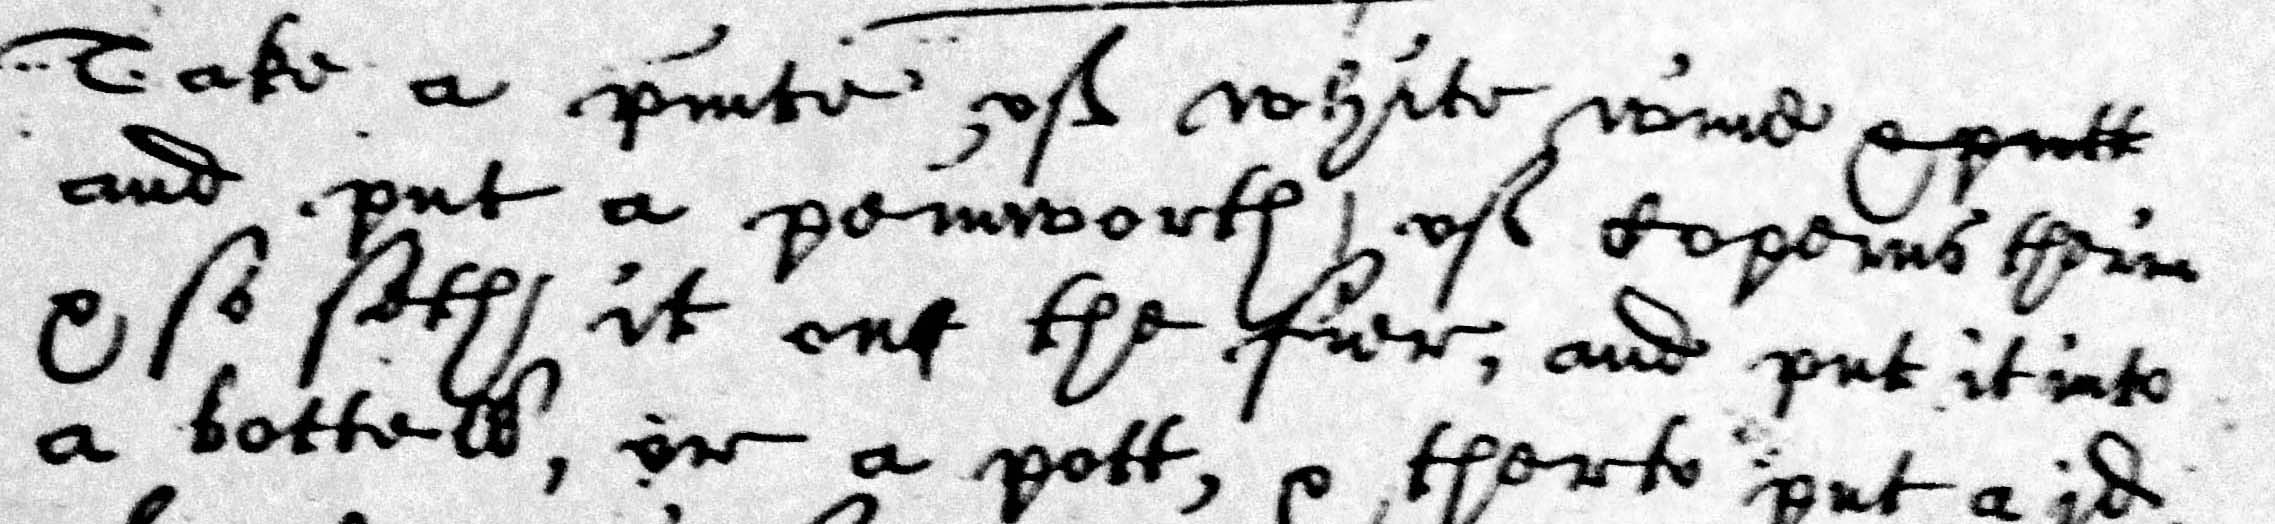 Take a pinte of white wine & putt
and put a peniworth of Coperus therin
& so seth it on the fier, and put it into
a bottell, or a pott, & therto put a jd